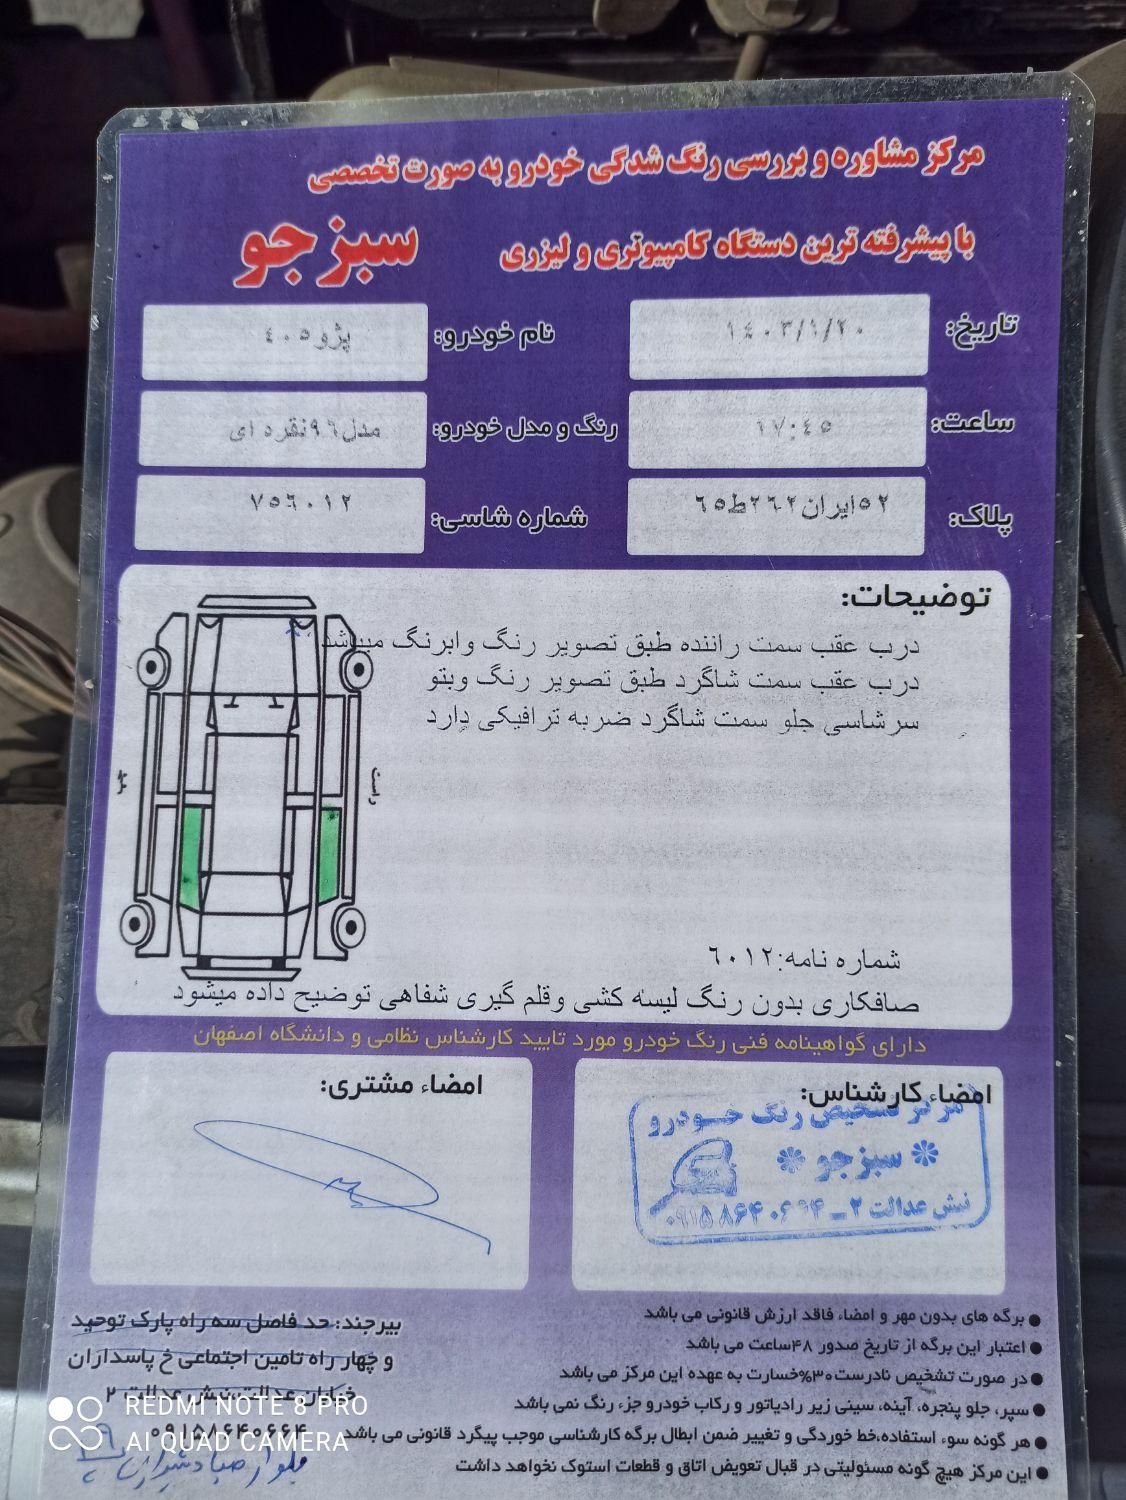 مرکز مشاوره و بررسی رنگ شدگی خودرو به صورت تخصصی
با پیشرفته ترین دستگاه کامپیوتری و لیزری
سبز جو
تاریخ: ۱۴۰۳/۱/۲۰
نام خودرو: پژو ۴۰۵
ساعت: ۱۷:۴۵
رنگ و مدل خودرو: مدل۹۶نقره ای
پلاک: ۵۲ایران۲۶۲ط۶۵
شماره شاسی: ۷۵۶۰۱۲
توضیحات:
درب عقب سمت راننده طبق تصویر رنگ وابرنگ میباشد
درب عقب سمت شاگرد طبق تصویر رنگ وبتو
سرشاسی جلو سمت شاگرد ضربه ترافیکی دارد
راست
شماره نامه:۶۰۱۲
صافکاری بدون رنگ لیسه کشی وقلم گیری شفاهی توضیح داده میشود
دارای گواهینامه فنی رنگ خودرو مورد تایید کارشناس نظامی و دانشگاه اصفهان
امضاء کارشناس:
مرکز تشخیص رنگ خودرو
سبز جو
نبش عدالت ۲ــ
امضاء مشتری:
برگه های بدون مهر و امضاء فاقد ارزش قانونی می باشد
اعتبار این برگه از تاریخ صدور ۴۸ساعت می باشد
در صورت تشخیص نادرست۳۰%خسارت به عهده این مرکز می باشد
سپر، جلو پنجره، آینه، سینی زیر رادیاتور و رکاب خودرو جزء رنگ نمی باشد
هر گونه سوء استفاده،خط خوردگی و تغییر ضمن ابطال برگه کارشناسی موجب پیگرد قانونی می باشد
این مرکز هیچ گونه مسئولیتی در قبال تعویض اتاق و قطعات استوک نخواهد داشت
بیرجند: حد فاصل سه راه پارک توحید
و چهار راه تامین اجتماعی خ پاسداران
خیابان عدالت،نبش عدالت ۲
۰۹۱۵۸۶۴۰۶۶۴
بلوار صیاد شیرازی
REDMI NOTE 8 PRO
AI QUAD CAMERA